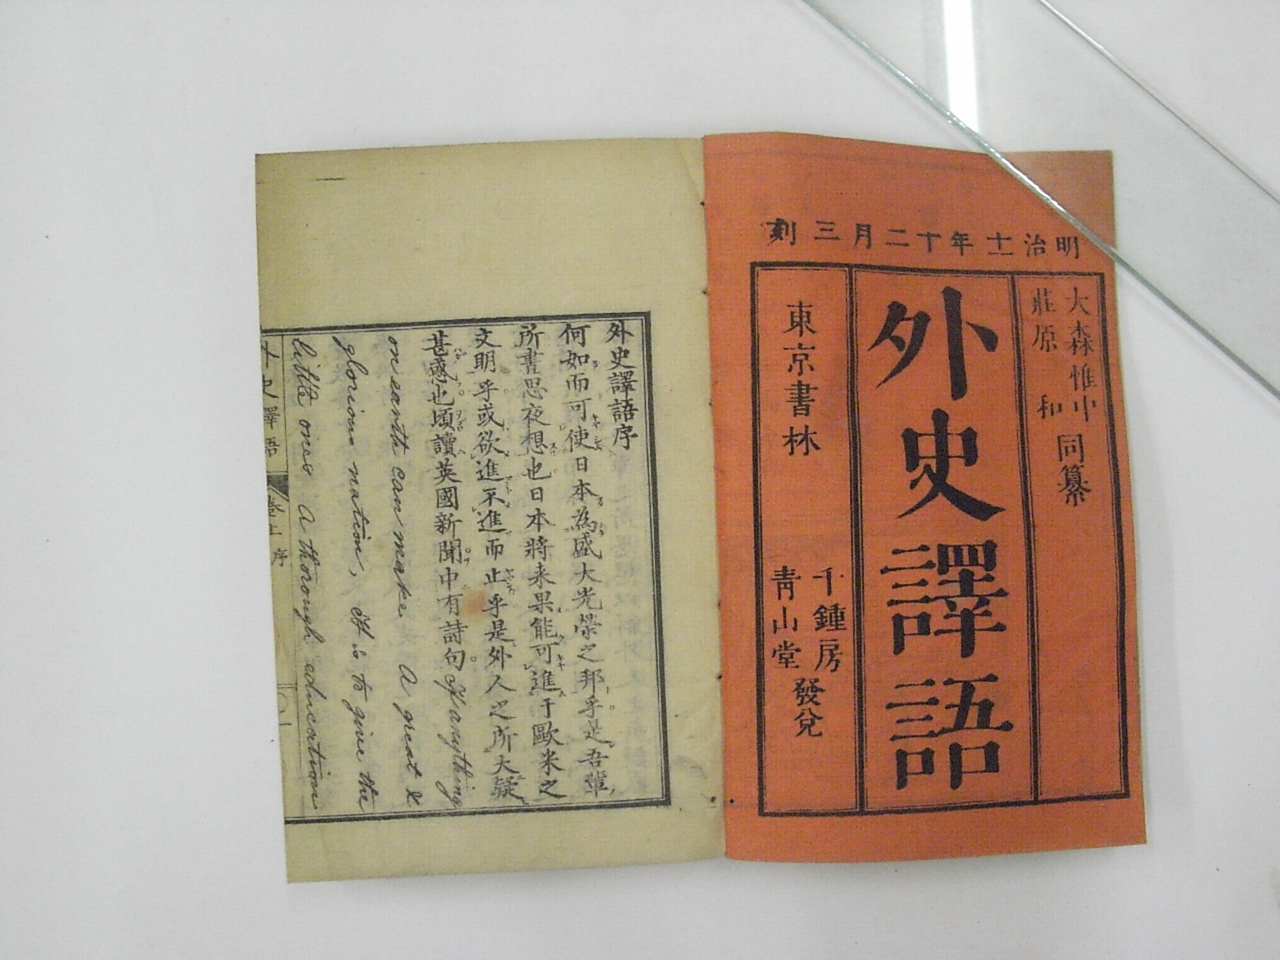 明治十一年十二月三刻
大森惟中
莊原和
同纂
外史譯語
東京書林
千鍾房
青山堂
發兌
外史譯語序
何如而可使日本為盛大光榮之邦乎是吾輩
所書思夜想也日本將来果能可進于歐米之
文明乎或欲進不進而止乎是外人之所大疑
甚惑也頃讀英國新聞中有詩句 If anything
on earth can make A great &
glorious nation, It is to give the
little ones A thorough education
外史譯語 卷上 序